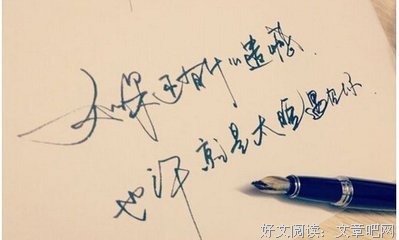 如果还有什么遗憾
也许就是太晚遇见你
好文阅读：文章吧网